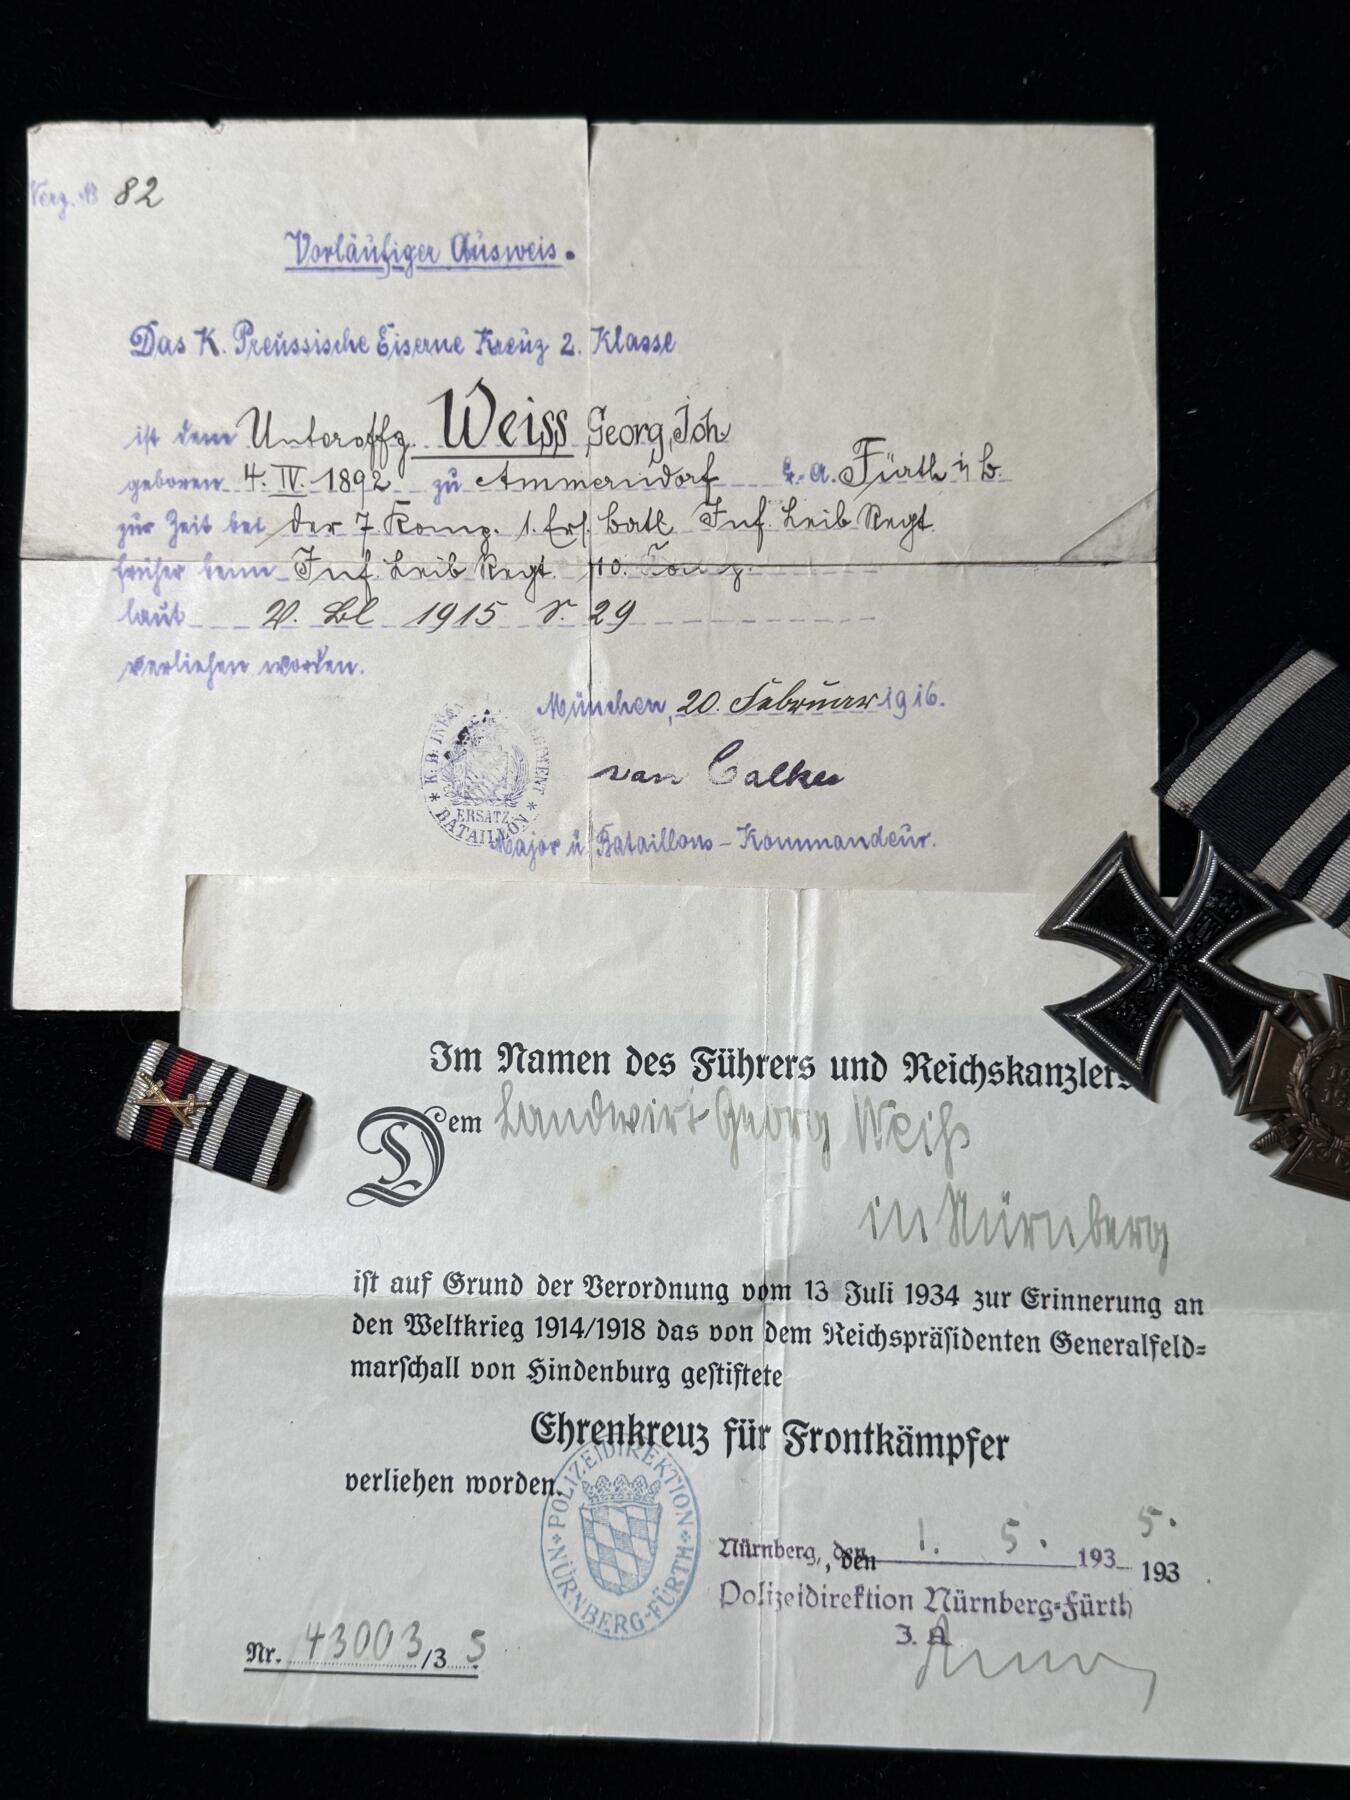 Verz. № 82
Vorläufiger Ausweis.
Das K. Preussische Eiserne Kreuz 2. Klasse
ist dem Unteroffz. Weiss Georg, Joh.
geboren 4. IV. 1892 zu Ammerndorf B.-A. Fürth i/B.
zur Zeit bei der 7 Komp. 1. Ers. Batl. Inf. Leib Regt.
früher beim Inf. Leib Regt. 10. Komp.
laut V. Bl 1915 S. 29
verliehen worden.
München, 20. Februar 1916.
van Calker
Major u. Bataillons-Kommandeur.
K. B. INF. REGIMENT
ERSATZ
BATAILLON
Im Namen des Führers und Reichskanzlers
Dem Landwirt Georg Weiß
in Nürnberg
ist auf Grund der Verordnung vom 13 Juli 1934 zur Erinnerung an
den Weltkrieg 1914/1918 das von dem Reichspräsidenten Generalfeld-
marschall von Hindenburg gestiftete
Ehrenkreuz für Frontkämpfer
verliehen worden.
POLIZEIDIREKTION
NÜRNBERG-FÜRTH
Nürnberg, den 1. 5. 193 5.
, den 193
Polizeidirektion Nürnberg-Fürth
I. A.
Nr. 43003/35